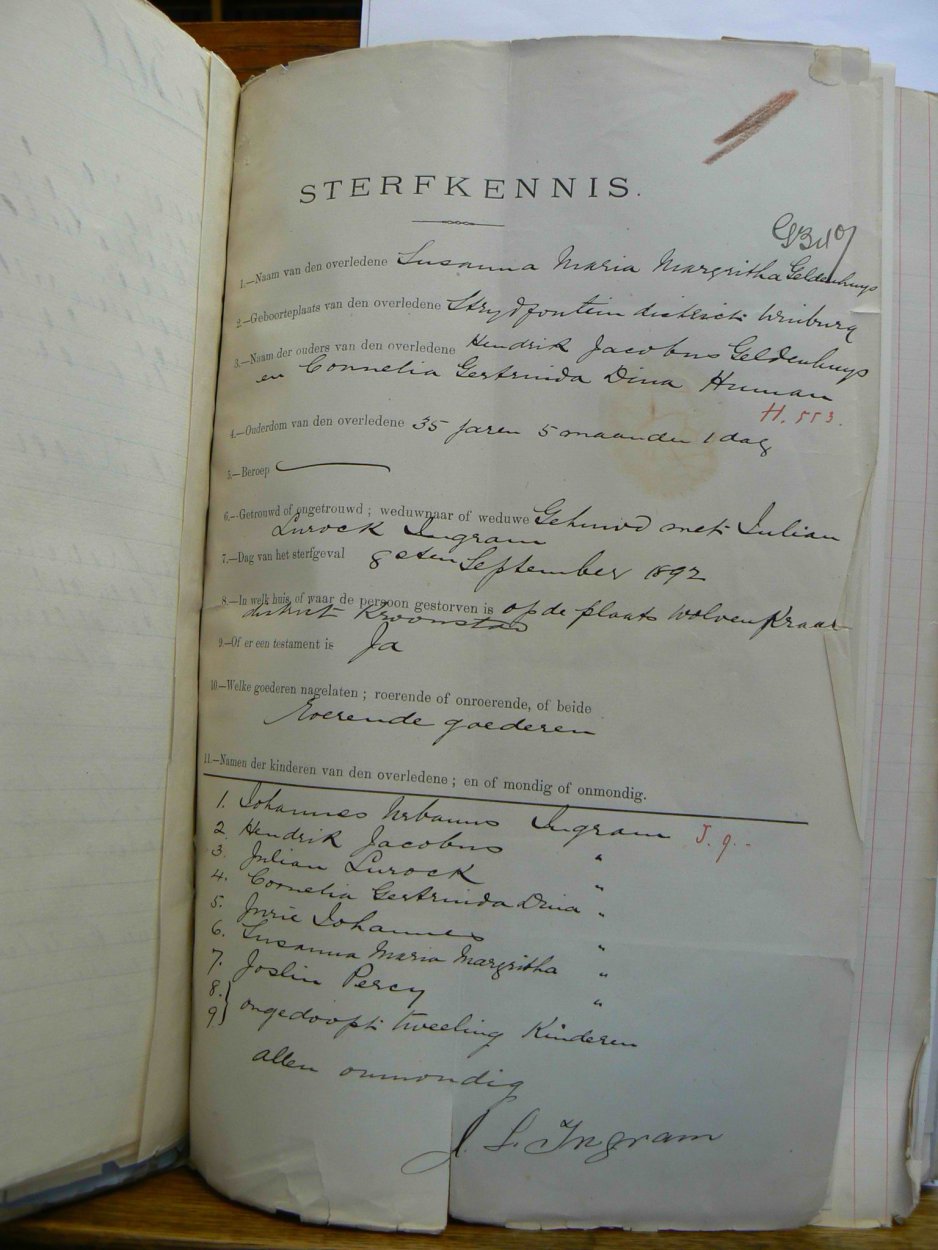 STERFKENNIS.
1.—Naam van den overledene Susanna Maria Margritha Geldenhuys
2.—Geboorteplaats van den overledene Strydfontein district Winburg
3.—Naam der ouders van den overledene Hendrik Jacobus Geldenhuys
en Cornelia Gertruida Dina Human
H. 553.
4.—Ouderdom van den overledene 35 jaren 5 maanden 1 dag
5.—Beroep
6.—Getrouwd of ongetrouwd ; weduwnaar of weduwe Gehuwd met Julian
Lurock Ingram
7.—Dag van het sterfgeval 8sten September 1892
8.—In welk huis, of waar de persoon gestorven is op de plaats Wolvenkraal
district Kroonstad
9.—Of er een testament is Ja
10.—Welke goederen nagelaten ; roerende of onroerende, of beide
Roerende goederen
11.—Namen der kinderen van den overledene ; en of mondig of onmondig.
1. Johannes Urbanus Ingram J. 9.
2. Hendrik Jacobus "
3. Julian Lurock "
4. Cornelia Gertruida Dina "
5. Jurie Johannes "
6. Susanna Maria Margritha "
7. Joslin Percy "
8.} ongedoopt tweeling Kinderen
9}
allen onmondig
J. L. Ingram